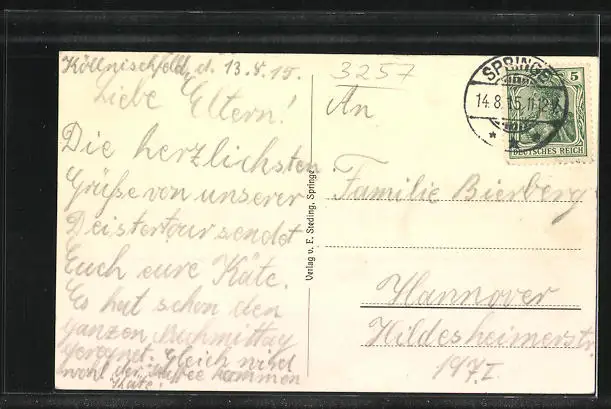 Köllnischfeld, d. 13.8.15.
Liebe Eltern!
Die herzlichsten
Grüße von unserer
Deistertour sendet
Euch eure Käte.
Es hat schon den
ganzen Nachmittag
geregnet. Gleich wird
wohl der Kaffee kommen
Käte!
Verlag v. F. Steding, Springe
3257
An
Familie Bierberg
Hannover
Hildesheimerstr.
197 I.
SPRINGE
14.8.15.11-12V.
5
DEUTSCHES REICH